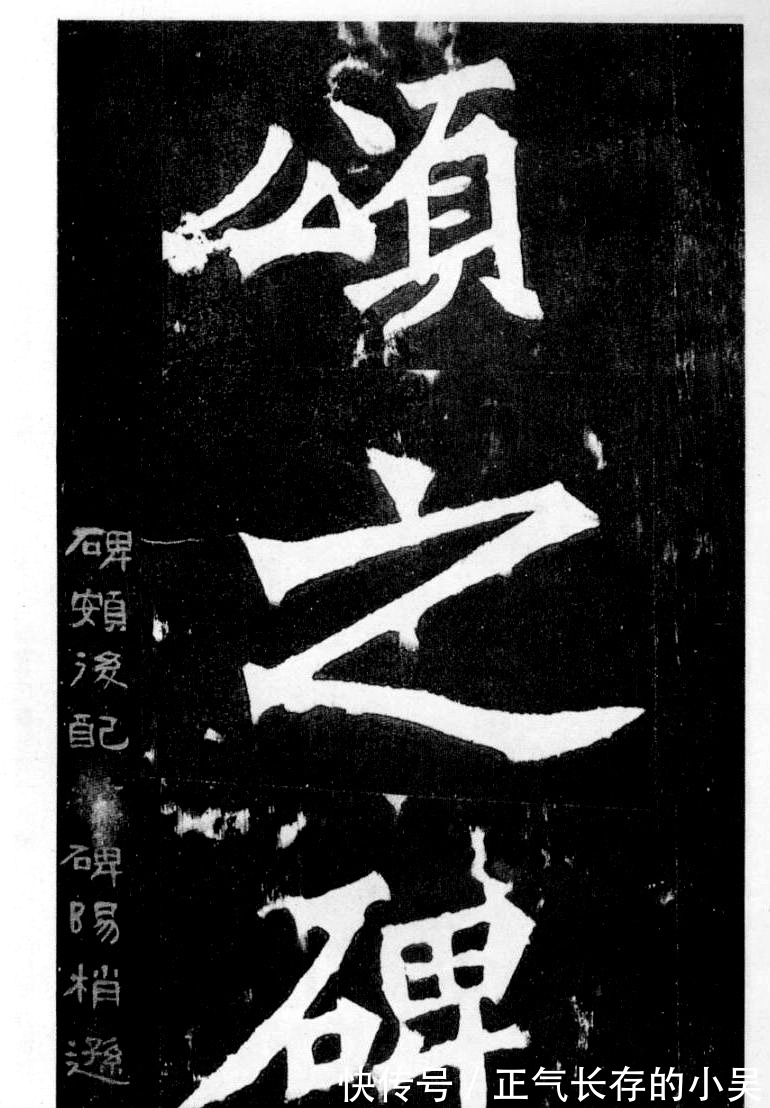 頌之碑
碑額後配 碑陽梢遜
快传号 / 正气长存的小吴